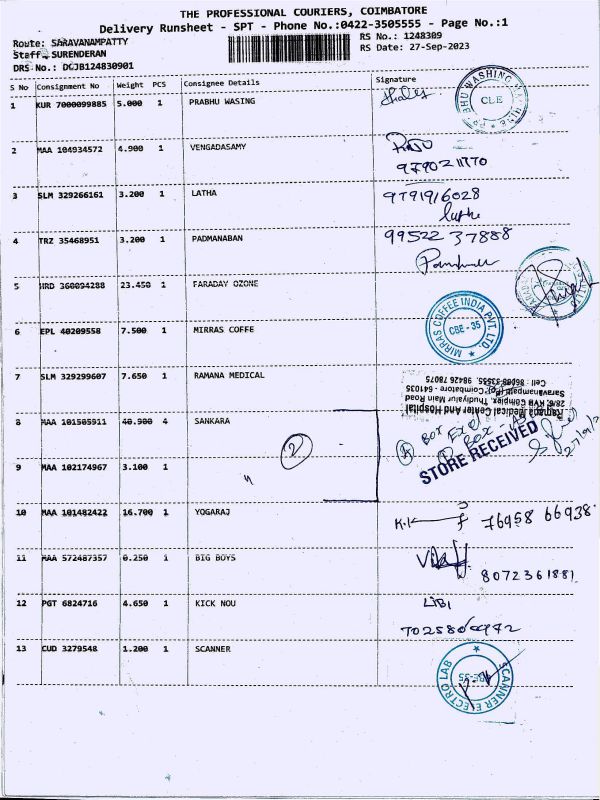 THE PROFESSIONAL COURIERS, COIMBATORE
Delivery Runsheet - SPT - Phone No.:0422-3505555 - Page No.:1
Route: SARAVANAMPATTY
RS No.: 1248309
Staff SURENDERAN
RS Date: 27-Sep-2023
DRS No.: DCJB124830901
S No Consignment No Weight PCS Consignee Details Signature
1 KUR 7000099885 5.000 1 PRABHU WASING
PRABHU WASHING
CLE
2 MAA 104934572 4.900 1 VENGADASAMY
3 SLM 329266161 3.200 1 LATHA 9791916028
Latha
4 TRZ 35468951 3.200 1 PADMANABAN 99522 37888
5 HRD 360094288 23.450 1 FARADAY OZONE
6 EPL 40209558 7.500 1 MIRRAS COFFE
MIRRAS COFFEE INDIA PVT. LTD.
CBE - 35
7 SLM 329299607 7.650 1 RAMANA MEDICAL
Ramana Medical Center And Hospital
28/6, KVR Complex, Thudiyalur Main Road
Saravanampatti (PO), Coimbatore - 641035
8 MAA 101505911 40.900 4 SANKARA
2
STORE RECEIVED
9 MAA 102174967 3.100 1
10 MAA 101482422 16.700 1 YOGARAJ 76958 66938
11 MAA 572487357 0.250 1 BIG BOYS
8072361881
12 PGT 6824716 4.650 1 KICK NOU LIBI
13 CUD 3279548 1.200 1 SCANNER
SCANNER ELECTRO LAB
CBE-35